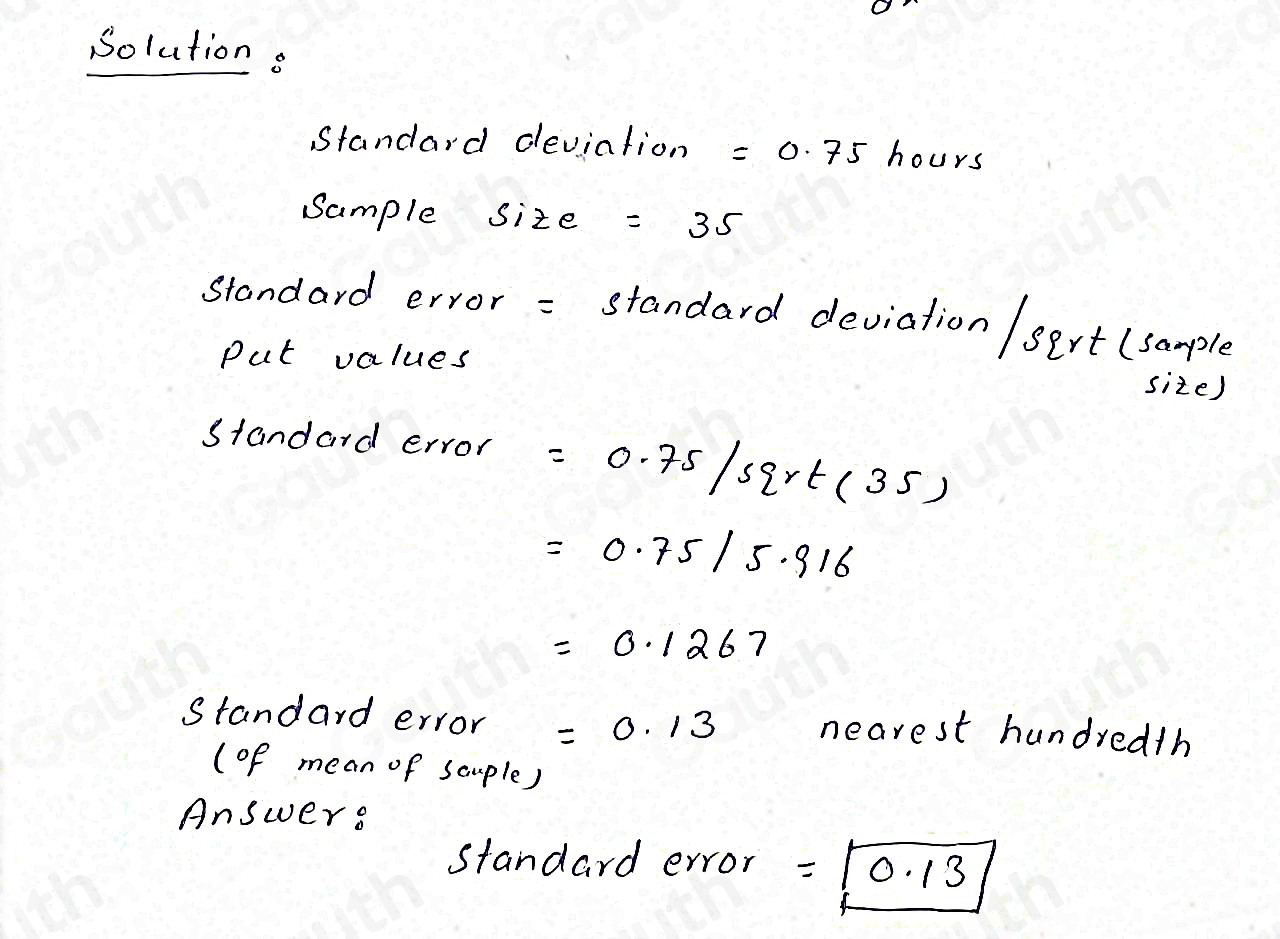 Solution :
Standard deviation = 0.75 hours
Sample size = 35
Standard error = standard deviation / sqrt (sample
size)
Put values
Standard error = 0.75 / sqrt (35)
= 0.75 / 5.916
= 0.1267
Standard error = 0.13 nearest hundredth
(of mean of sample)
Answer :
Standard error = 0.13
Gauth